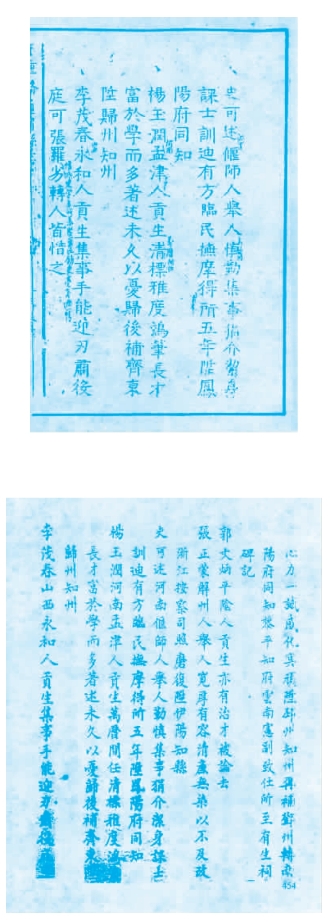 史可述偃師人舉人慎勤集事狷介
課士訓迪有方臨民撫摩得所五年陞鳳
陽府同知
楊玉潤孟津人貢生清標雅度鴻舉長才
富於學而多著述未久以憂歸後補齊東
陞歸州知州
李茂春永和人貢生集事手能迎刃肅後
庭可張羅步轉人皆惜之
心力一誠感化異族陞邳州知州再補鄭州轉南
陽府同知黎平知府雲南憲副致仕所至有生祠
碑記
郭文炳平陰人貢生亦有治才被論去
張正蒙解州人舉人寬厚有容清廉無染以不及改
浙江按察司照磨復陞伊陽知縣
史可述河南偃師人舉人勤慎集事狷介潔身課士
訓迪有方臨民撫摩得所五年陞鳳陽府同知
楊玉潤河南孟津人貢生萬曆間任清標雅度鴻
長才富於學而多著述未久以憂歸後補齊東
歸州知州
李茂春山西永和人貢生集事手能迎刃
454